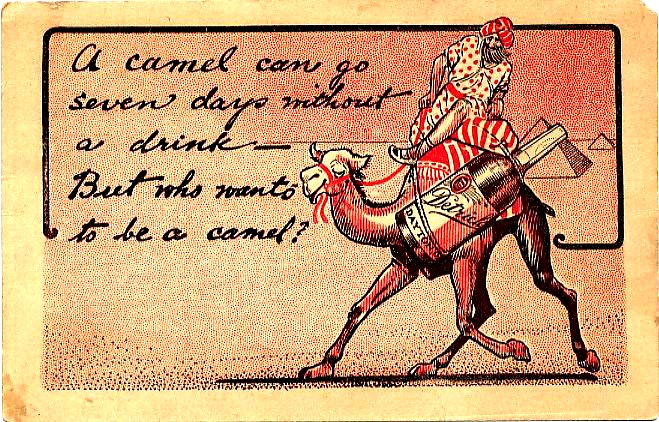 A camel can go
seven days without
a drink —
But who wants
to be a camel?
DAYTON